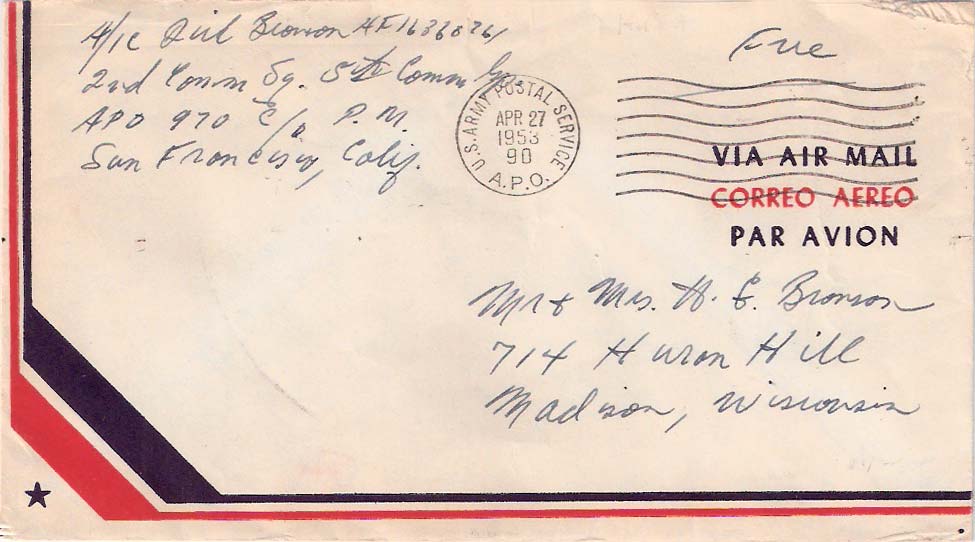 A/1C Dick Bronson AF16368261
2nd Comm Sq. 5th Comm Gp.
APO 970 C/o P.M.
San Francisco, Calif.
Free
U.S. ARMY POSTAL SERVICE
APR 27
1953
90
A.P.O.
VIA AIR MAIL
CORREO AEREO
PAR AVION
Mr & Mrs. H. E. Bronson
714 Huron Hill
Madison, Wisconsin